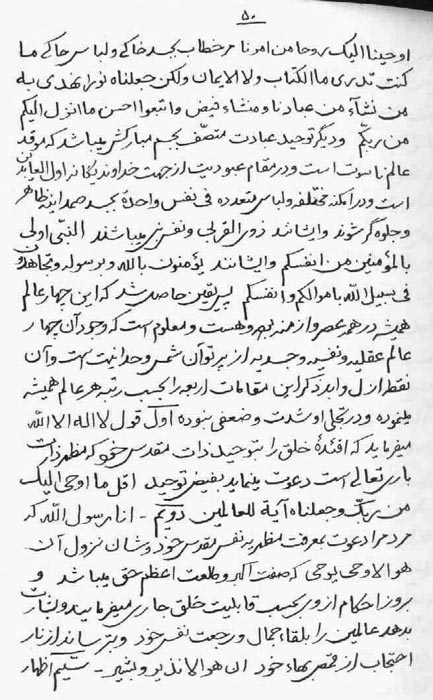 ۵۰
اوحینا الیک روحا من امرنا مر خطاب بجسد خاکے و لباس خاکے ما
کنت تدری ما الکتاب ولا الایمان ولکن جعلناه نورا نهدی به
من نشآء من عبادنا و منشاء فیض واتبعوا احسن ما انزل الیکم
من ربکم و دیگر توحید عبادت متصف بجسم مبارکش میباشد که موقد
عالم ناسوت است و در مقام عبودیت از جهت خداوند یگانه اول العابدین
است و در امکنه مختلفه و لباس متعدده فی نفس واحدة بجسد صمدانیه ظاهر
و جلوه گر شوند و ایشانند ذوی القربی و نفرین میباشند النبی اولی
بالمؤمنین من انفسکم و ایشانند یؤمنون بالله و برسوله و تجاهدون
فی سبیل الله باموالکم وانفسکم پس یقین حاصل شد که این چهار عالم
همیشه در همه عصر و ازمنه بوده و هست و معلوم است که وجود آن چهار
عالم عقلیه و نفسیه و جسدیه از پرتو آن شمس وحدانیت است و آن
نقطه ازل و ابد ذکر این مقامات اربعه را بحسب رتبه هر عالم همیشه
مینموده و در تجلی او شدت و ضعفی نبوده اول قول لا اله الا الله
میفرماید که افئدهٔ خلق را بتوحید ذات مقدس خود که مظهر ذات
باری تعالی است دعوت مینماید بفیض توحید اقل ما اوحی الیک
من ربک و جعلناه آیة للعالمین دویم - انا رسول الله که
مردم را دعوت بمعرفت مظهریه نفس مقدس خود و شان نزول آن
هو الا وحی یوحی که صفت اکبر و طلعت اعظم حق میباشد و
بروز احکام از وی بحسب قابلیت خلق جاری میفرمایند و بشارت
بدهد عالمین را بلقاء جمال و رجعت نفس خود و بترساند از نار
احتجاب از قمص بهاء خود ان هو الا نذیر و بشیر - سیم اظهار